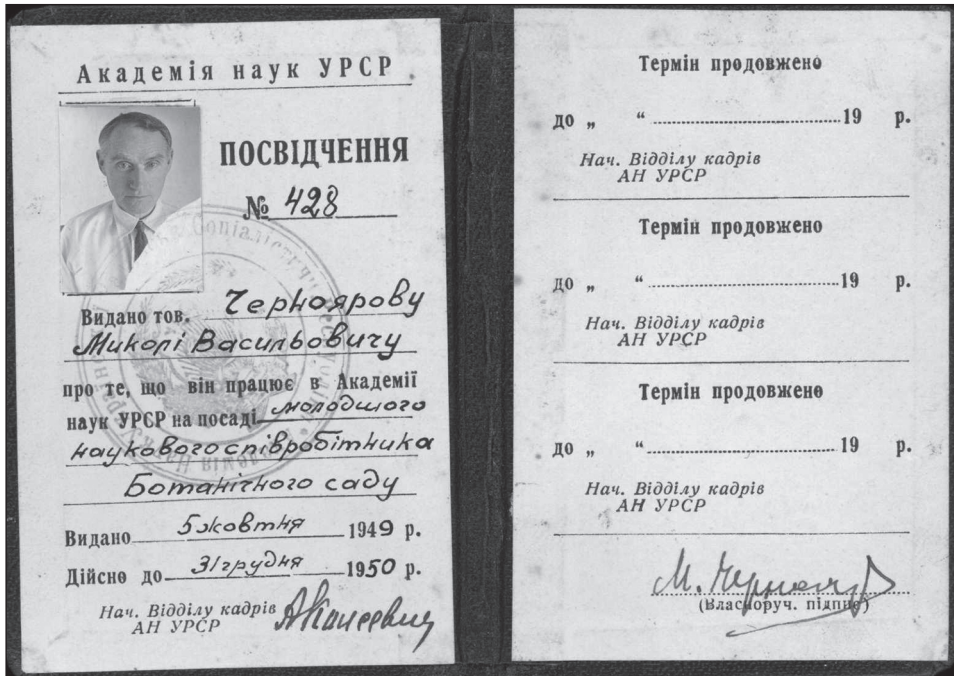 Академія наук УРСР
ПОСВІДЧЕННЯ
№ 428
Видано тов. Черноярову
Миколі Васильовичу
про те, що він працює в Академії
наук УРСР на посаді молодшого
наукового співробітника
Ботанічного саду
Видано 5 жовтня 1949 р.
Дійсно до 31 грудня 1950 р.
Нач. Відділу кадрів
АН УРСР
Термін продовжено
до „ “ 19 р.
Нач. Відділу кадрів
АН УРСР
Термін продовжено
до „ “ 19 р.
Нач. Відділу кадрів
АН УРСР
Термін продовжено
до „ “ 19 р.
Нач. Відділу кадрів
АН УРСР
М. Чернояр
(Власноруч. підпис)